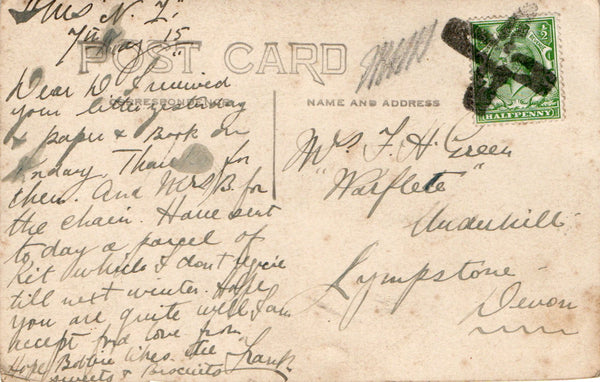 HMS "N. Z."
7th May 15"
POST CARD
CORRESPONDENCE
NAME AND ADDRESS
HALFPENNY
Dear D I received
your letter yesterday
& paper & Book on
Sunday. Thanks for
them. And Mrs B. for
the chain. Have sent
to day a parcel of
Kit which I dont require
till next winter. Hope
you are quite well, I am
Accept fond love from
Frank
Hope Bobbie likes the
sweets & Biscuits
Mrs F. H. Green
"Warflete"
Underhill
Lympstone
Devon